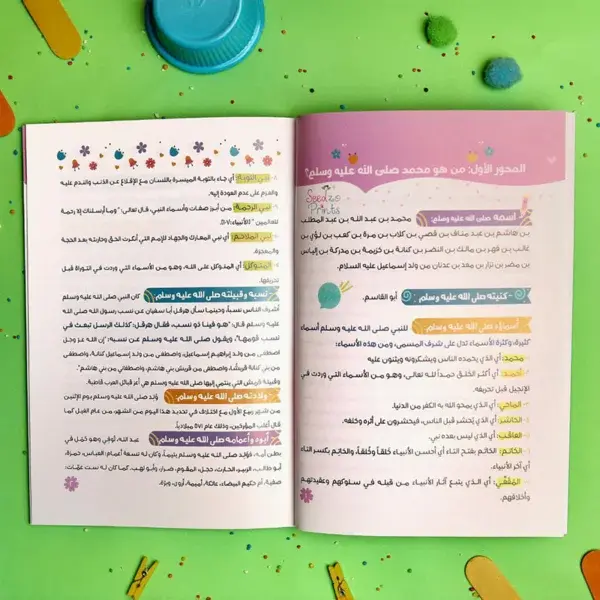 المحور الأول: من هو محمد صلى الله عليه وسلم؟
Seedzo
Prints
اسمه صلى الله عليه وسلم: محمد بن عبد الله بن عبد المطلب
بن هاشم بن عبد مناف بن قصي بن كلاب بن مرة بن كعب بن لؤي بن
غالب بن فهر بن مالك بن النضر بن كنانة بن خزيمة بن مدركة بن إلياس
بن مضر بن نزار بن معد بن عدنان من ولد إسماعيل عليه السلام.
-كنيته صلى الله عليه وسلم: أبو القاسم.
أسماؤه صلى الله عليه وسلم: للنبي صلى الله عليه وسلم أسماء
كثيرة، وكثرة الأسماء تدل على شرف المسمى، ومن هذه الأسماء:
محمد: أي الذي يحمده الناس ويشكرونه ويثنون عليه
أحمد: أي أكثر الخلق حمداً لله تعالى، وهو من الأسماء التي وردت في
الإنجيل قبل تحريفه.
الماحي: أي الذي يمحو الله به الكفر من الدنيا.
الحاشر: أي الذي يُحشر قبل الناس، فيحشرون على أثره وخلفه.
العاقب: أي الذي ليس بعده نبي.
الخاتم: الخاتَم بفتح التاء أي أحسن الأنبياء خَلقاً وخُلقاً، والخاتِم بكسر التاء
أي آخر الأنبياء.
المُقفّي: أي الذي يتبع آثار الأنبياء من قبله في سلوكهم وعقيدتهم
وأخلاقهم.
نبي التوبة: أي جاء بالتوبة الميسرة باللسان مع الإقلاع عن الذنب والندم عليه
والعزم على عدم العودة إليه.
نبي الرحمة: من أبرز صفات وأسماء النبي، قال تعالى "وما أرسلناك إلا رحمة
للعالمين" الأنبياء:
نبي الملاحم: أي نبي المعارك والجهاد للأمم التي أنكرت الحق وحاربته بعد الحجة
والمعجزة.
المتوكل: أي المتوكل على الله، وهو من الأسماء التي وردت في التوراة قبل
تحريفها.
نسبه وقبيلته صلى الله عليه وسلم: كان النبي صلى الله عليه وسلم
أشرف الناس نسباً، وحينما سأل هرقل أبا سفيان عن نسب رسول الله صلى الله
عليه وسلم قال: "هو فينا ذو نسب، فقال هرقل: كذلك الرسل تبعث في
نسب قومها"، ويقول صلى الله عليه وسلم عن نسبه: "إن الله عز وجل
اصطفى من ولد إبراهيم إسماعيل، واصطفى من ولد إسماعيل كنانة، واصطفى
من بني كنانة قريشًا، واصطفى من قريش بني هاشم، واصطفاني من بني هاشم".
وقبيلة قريش التي ينتمي إليها صلى الله عليه وسلم هي أعز قبائل العرب قاطبة.
ولادته صلى الله عليه وسلم: ولد صلى الله عليه وسلم يوم الإثنين
من شهر ربيع الأول مع اختلاف في تحديد هذا اليوم من الشهر، من عام الفيل كما
قال أغلب المؤرخين، وذلك عام ٥٧١ ميلادياً.
أبوه وأعمامه صلى الله عليه وسلم: عبد الله، توفي وهو حَمل في
بطن أمه، فوُلِد صلى الله عليه وسلم يتيماً، وكان له تسعة أعمام: العباس، حمزة،
أبو طالب، الزبير، الحارث، حجل، المقوم، ضرار، وأبو لهب، كما كان له ست عمّات:
صفية، أم حكيم البيضاء، عاتكة، أميمة، أروى، وبرة.